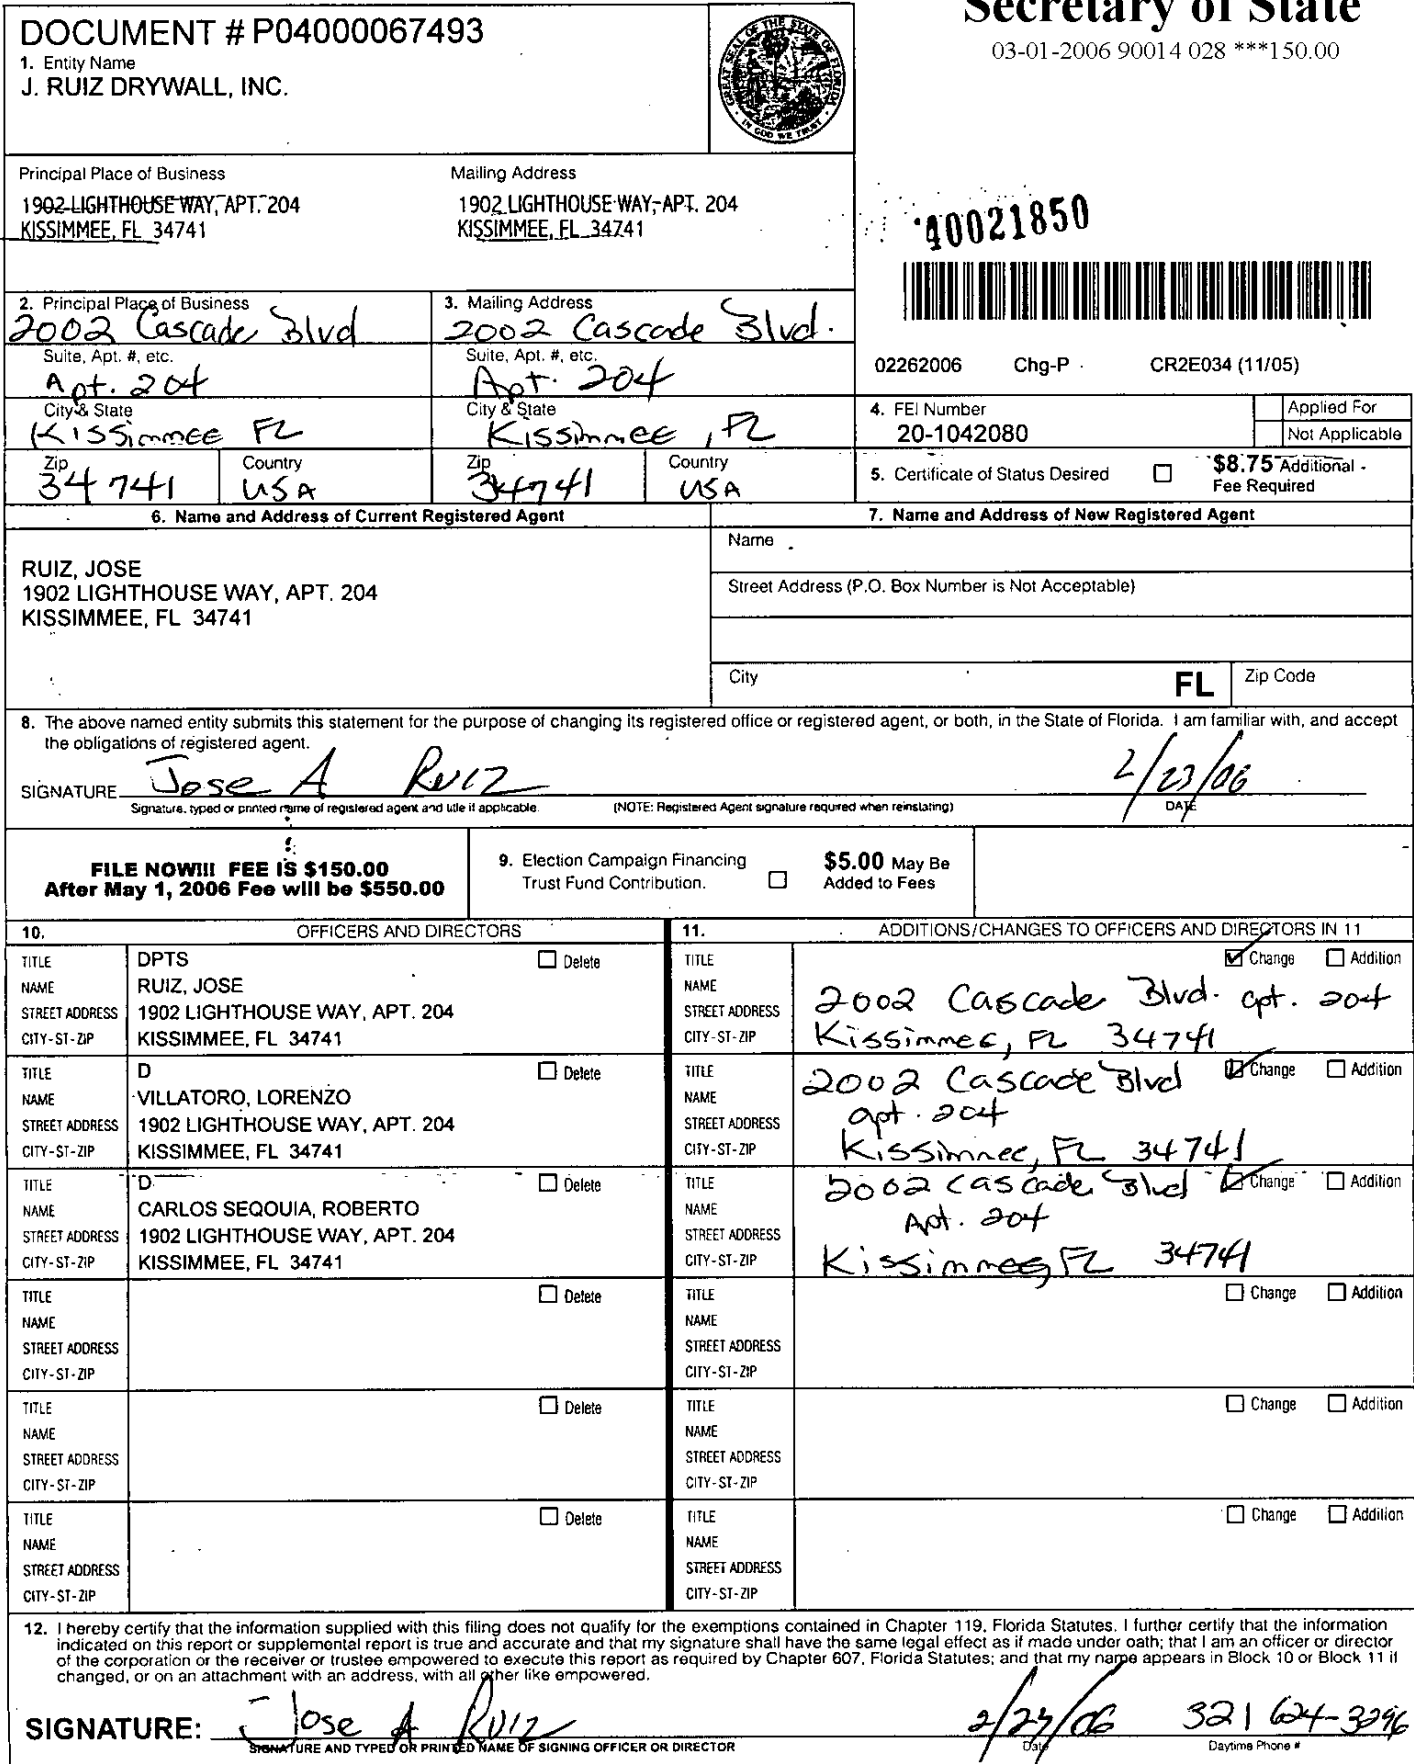 Secretary of State
03-01-2006 90014 028 ***150.00
DOCUMENT # P04000067493
1. Entity Name
J. RUIZ DRYWALL, INC.
GREAT SEAL OF THE STATE OF FLORIDA
IN GOD WE TRUST
Principal Place of Business
1902 LIGHTHOUSE WAY, APT. 204
KISSIMMEE, FL 34741
Mailing Address
1902 LIGHTHOUSE WAY, APT. 204
KISSIMMEE, FL 34741
40021850
2. Principal Place of Business
2002 Cascade Blvd
Suite, Apt. #, etc.
Apt. 204
City & State
Kissimmee FL
Zip
34741
Country
USA
3. Mailing Address
2002 Cascade Blvd.
Suite, Apt. #, etc.
Apt. 204
City & State
Kissimmee, FL
Zip
34741
Country
USA
02262006 Chg-P CR2E034 (11/05)
4. FEI Number
20-1042080
Applied For
Not Applicable
5. Certificate of Status Desired
$8.75 Additional
Fee Required
6. Name and Address of Current Registered Agent
RUIZ, JOSE
1902 LIGHTHOUSE WAY, APT. 204
KISSIMMEE, FL 34741
7. Name and Address of New Registered Agent
Name
Street Address (P.O. Box Number is Not Acceptable)
City
FL
Zip Code
8. The above named entity submits this statement for the purpose of changing its registered office or registered agent, or both, in the State of Florida. I am familiar with, and accept
the obligations of registered agent.
SIGNATURE Jose A Ruiz 2/23/06
Signature, typed or printed name of registered agent and title if applicable. (NOTE: Registered Agent signature required when reinstating) DATE
FILE NOW!!! FEE IS $150.00
After May 1, 2006 Fee will be $550.00
9. Election Campaign Financing
Trust Fund Contribution.
$5.00 May Be
Added to Fees
10. OFFICERS AND DIRECTORS
TITLE DPTS Delete
NAME RUIZ, JOSE
STREET ADDRESS 1902 LIGHTHOUSE WAY, APT. 204
CITY-ST-ZIP KISSIMMEE, FL 34741
TITLE D Delete
NAME VILLATORO, LORENZO
STREET ADDRESS 1902 LIGHTHOUSE WAY, APT. 204
CITY-ST-ZIP KISSIMMEE, FL 34741
TITLE D Delete
NAME CARLOS SEQOUIA, ROBERTO
STREET ADDRESS 1902 LIGHTHOUSE WAY, APT. 204
CITY-ST-ZIP KISSIMMEE, FL 34741
TITLE Delete
NAME
STREET ADDRESS
CITY-ST-ZIP
TITLE Delete
NAME
STREET ADDRESS
CITY-ST-ZIP
TITLE Delete
NAME
STREET ADDRESS
CITY-ST-ZIP
11. ADDITIONS/CHANGES TO OFFICERS AND DIRECTORS IN 11
TITLE Change Addition
NAME
STREET ADDRESS 2002 Cascade Blvd. apt. 204
CITY-ST-ZIP Kissimmee, FL 34741
TITLE 2002 Cascade Blvd Change Addition
NAME apt. 204
STREET ADDRESS
CITY-ST-ZIP Kissimmee, FL 34741
TITLE 2002 Cascade Blvd Change Addition
NAME Apt. 204
STREET ADDRESS
CITY-ST-ZIP Kissimmee, FL 34741
TITLE Change Addition
NAME
STREET ADDRESS
CITY-ST-ZIP
TITLE Change Addition
NAME
STREET ADDRESS
CITY-ST-ZIP
TITLE Change Addition
NAME
STREET ADDRESS
CITY-ST-ZIP
12. I hereby certify that the information supplied with this filing does not qualify for the exemptions contained in Chapter 119, Florida Statutes. I further certify that the information
indicated on this report or supplemental report is true and accurate and that my signature shall have the same legal effect as if made under oath; that I am an officer or director
of the corporation or the receiver or trustee empowered to execute this report as required by Chapter 607, Florida Statutes; and that my name appears in Block 10 or Block 11 if
changed, or on an attachment with an address, with all other like empowered.
SIGNATURE: Jose A Ruiz 2/23/06 321 624-3296
SIGNATURE AND TYPED OR PRINTED NAME OF SIGNING OFFICER OR DIRECTOR Date Daytime Phone #